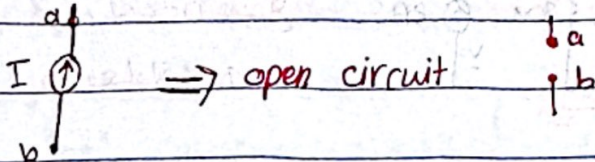 a
I ⇒ open circuit a
b
b